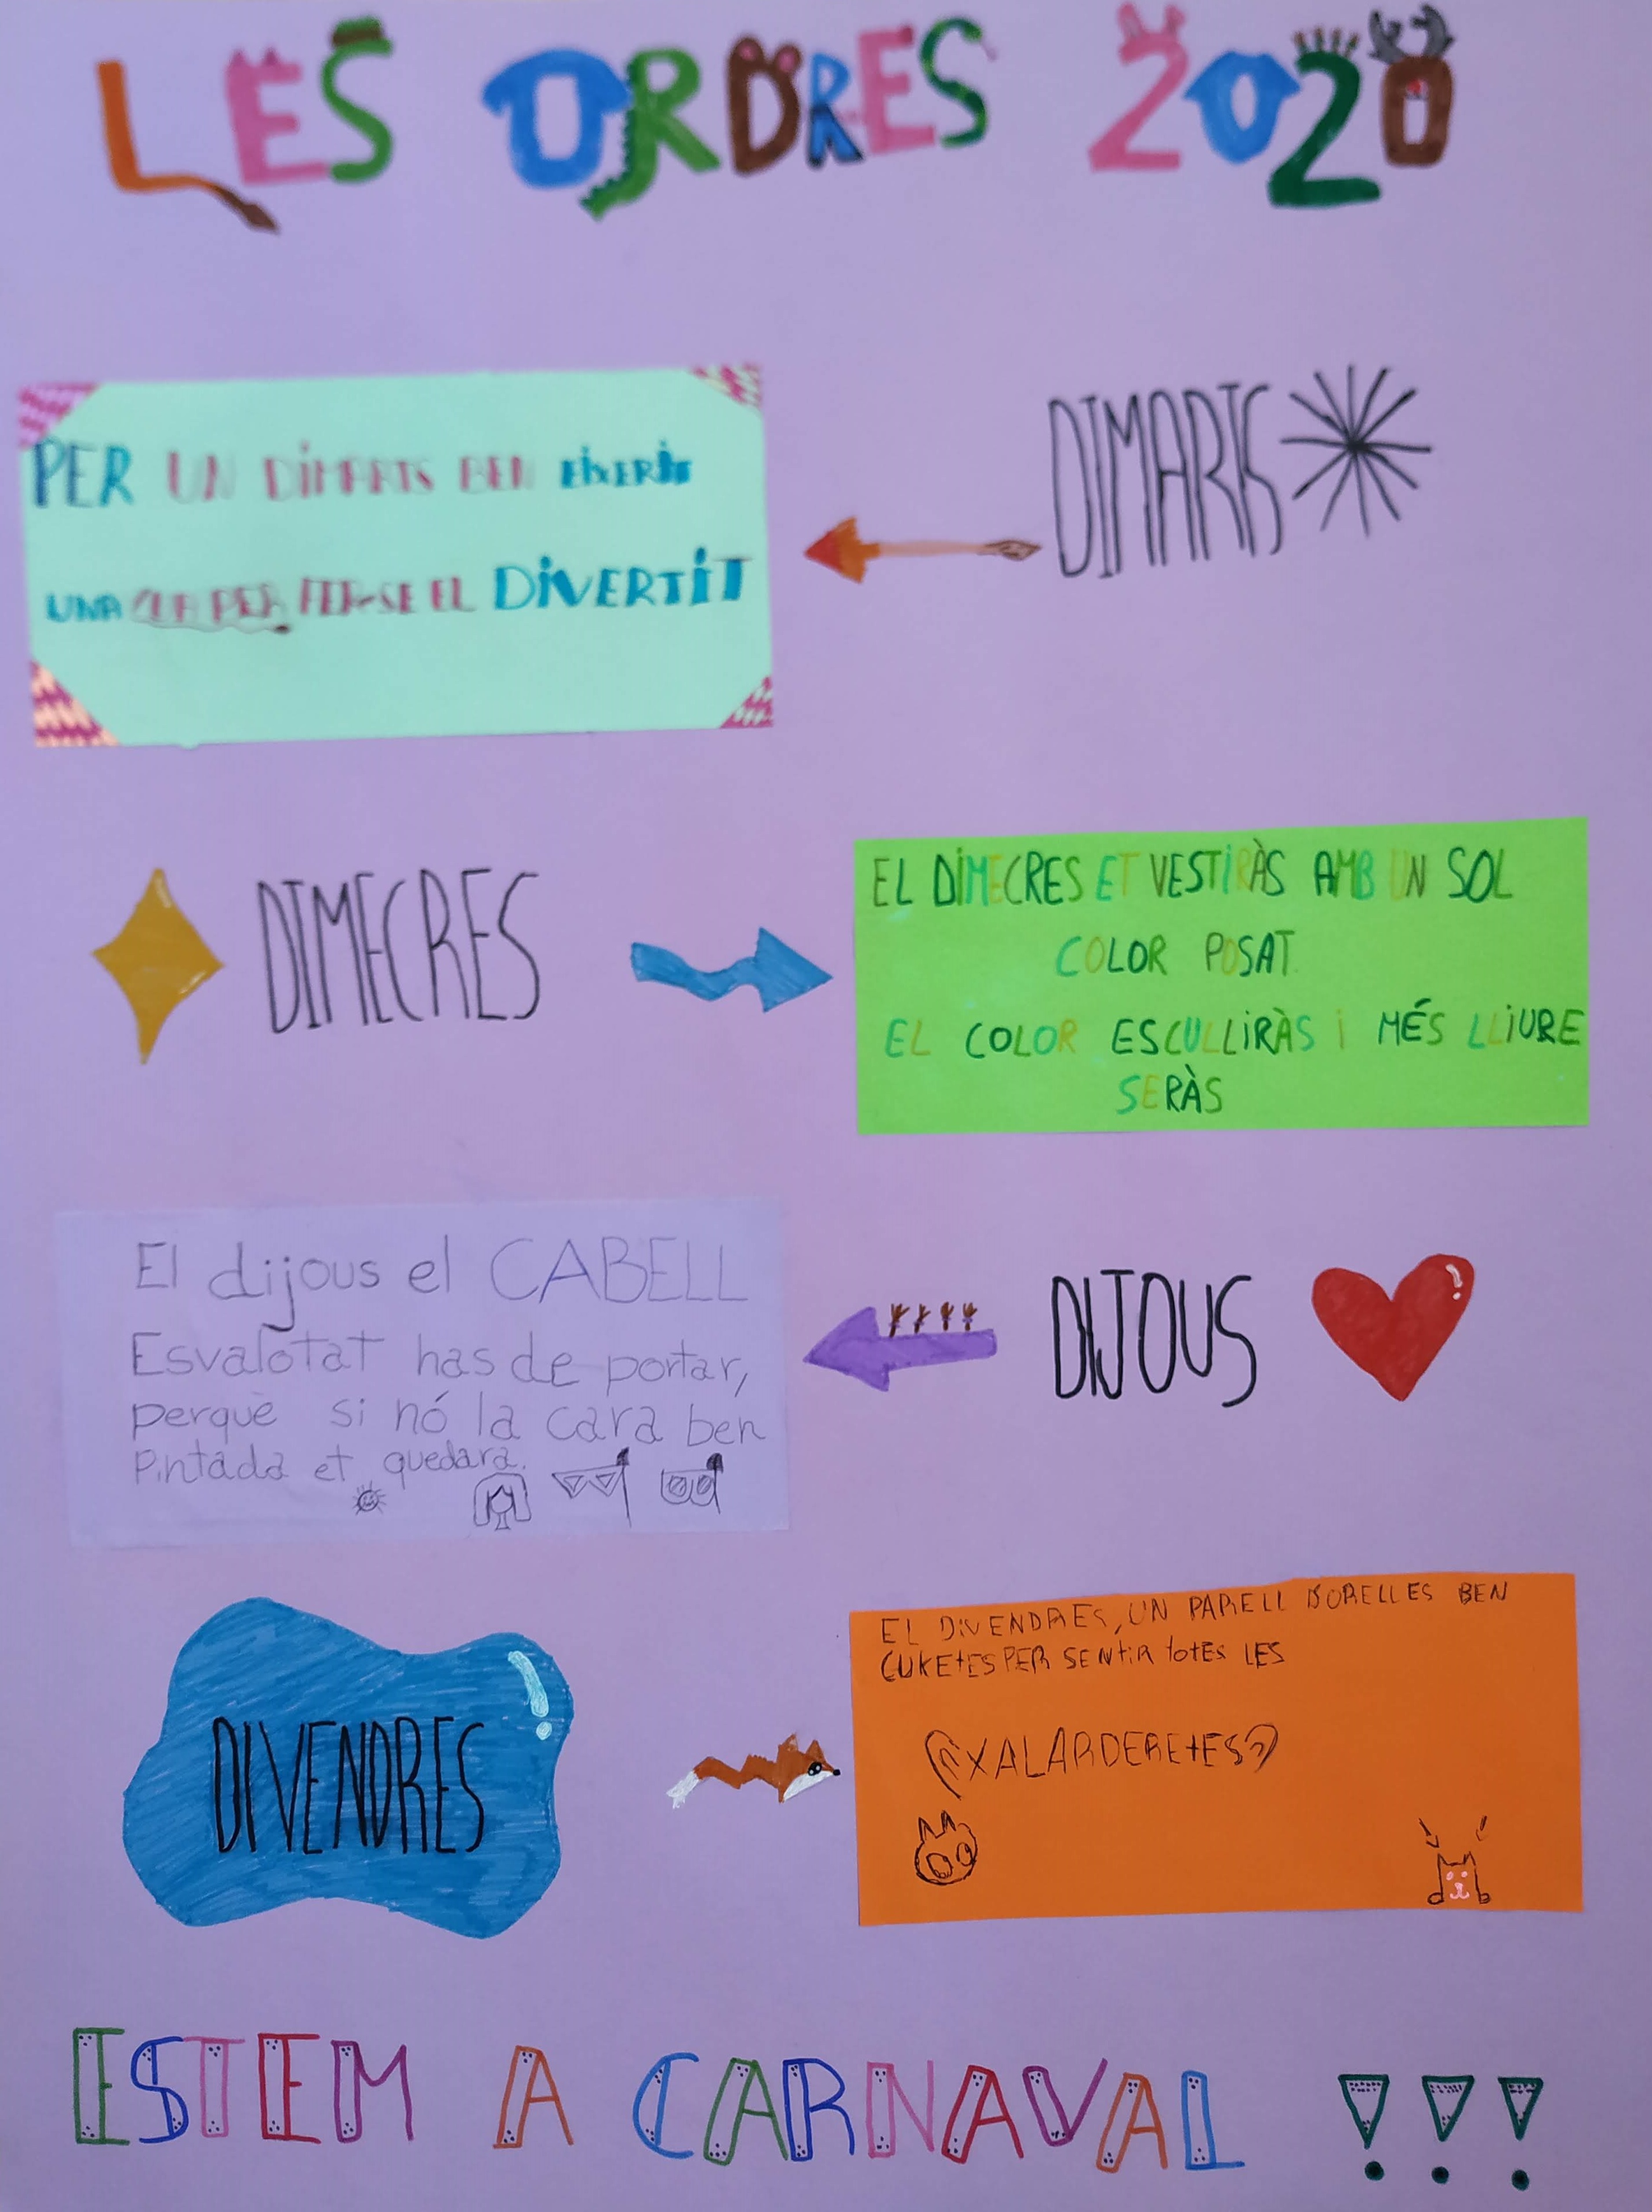 LES ORDRES 2020
DIMARTS
PER UN DIMARTS BEN EIXERIT
UNA CUA PER FER-SE EL DIVERTIT
DIMECRES
EL DIMECRES ET VESTIRÀS AMB UN SOL
COLOR POSAT
EL COLOR ESCULLIRÀS I MÉS LLIURE
SERÀS
DIJOUS
El dijous el CABELL
Esvalotat has de portar,
perquè si nó la cara ben
Pintada et quedara.
DIVENDRES
EL DIVENDRES, UN PARELL D'ORELLES BEN
CUKETES PER SENTIR totES LES
XALARDERETES
ESTEM A CARNAVAL !!!